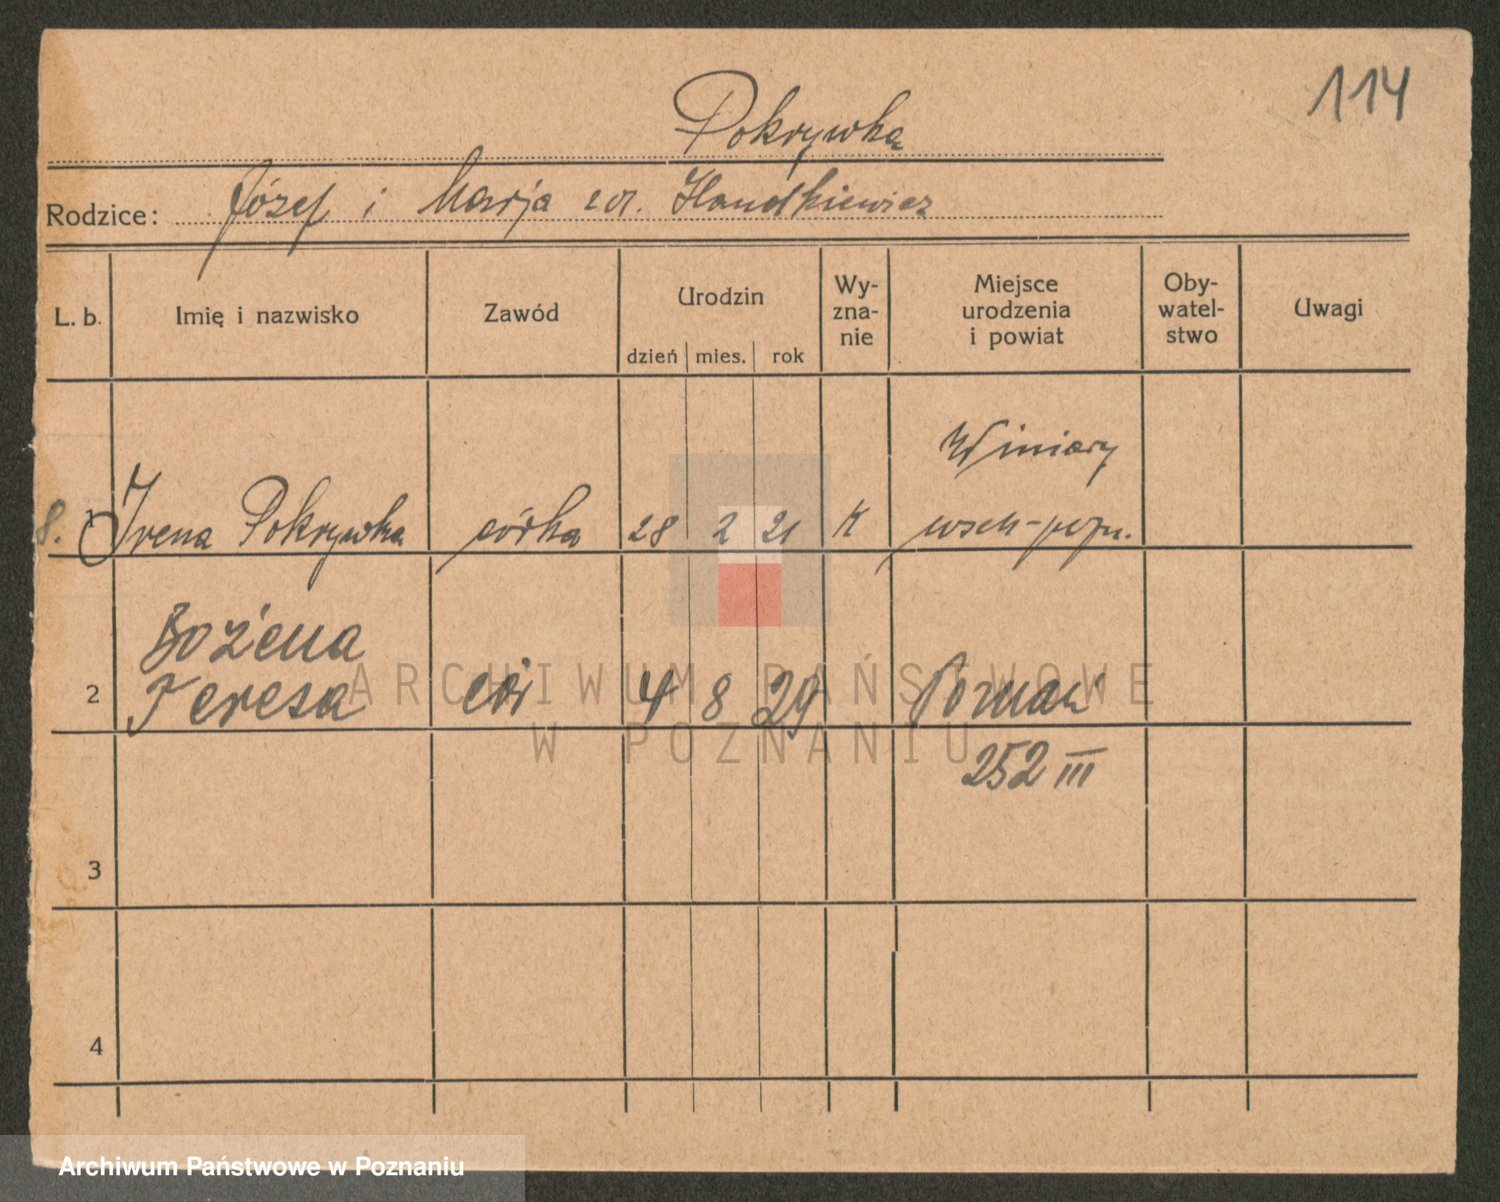 114
Pokrywka
Rodzice: Józef i Marja
L. b. Imię i nazwisko Zawód Urodzin dzień mies. rok Wy-zna-nie Miejsce urodzenia i powiat Oby-watel-stwo Uwagi
Winiary
8. 1 Irena Pokrywka córka 28 2 21 K wsch-pozn.
Bożena
2 Teresa cór 4 8 29 Poznań
252 III
3
4
ARCHIWUM PAŃSTWOWE
W POZNANIU
Archiwum Państwowe w Poznaniu